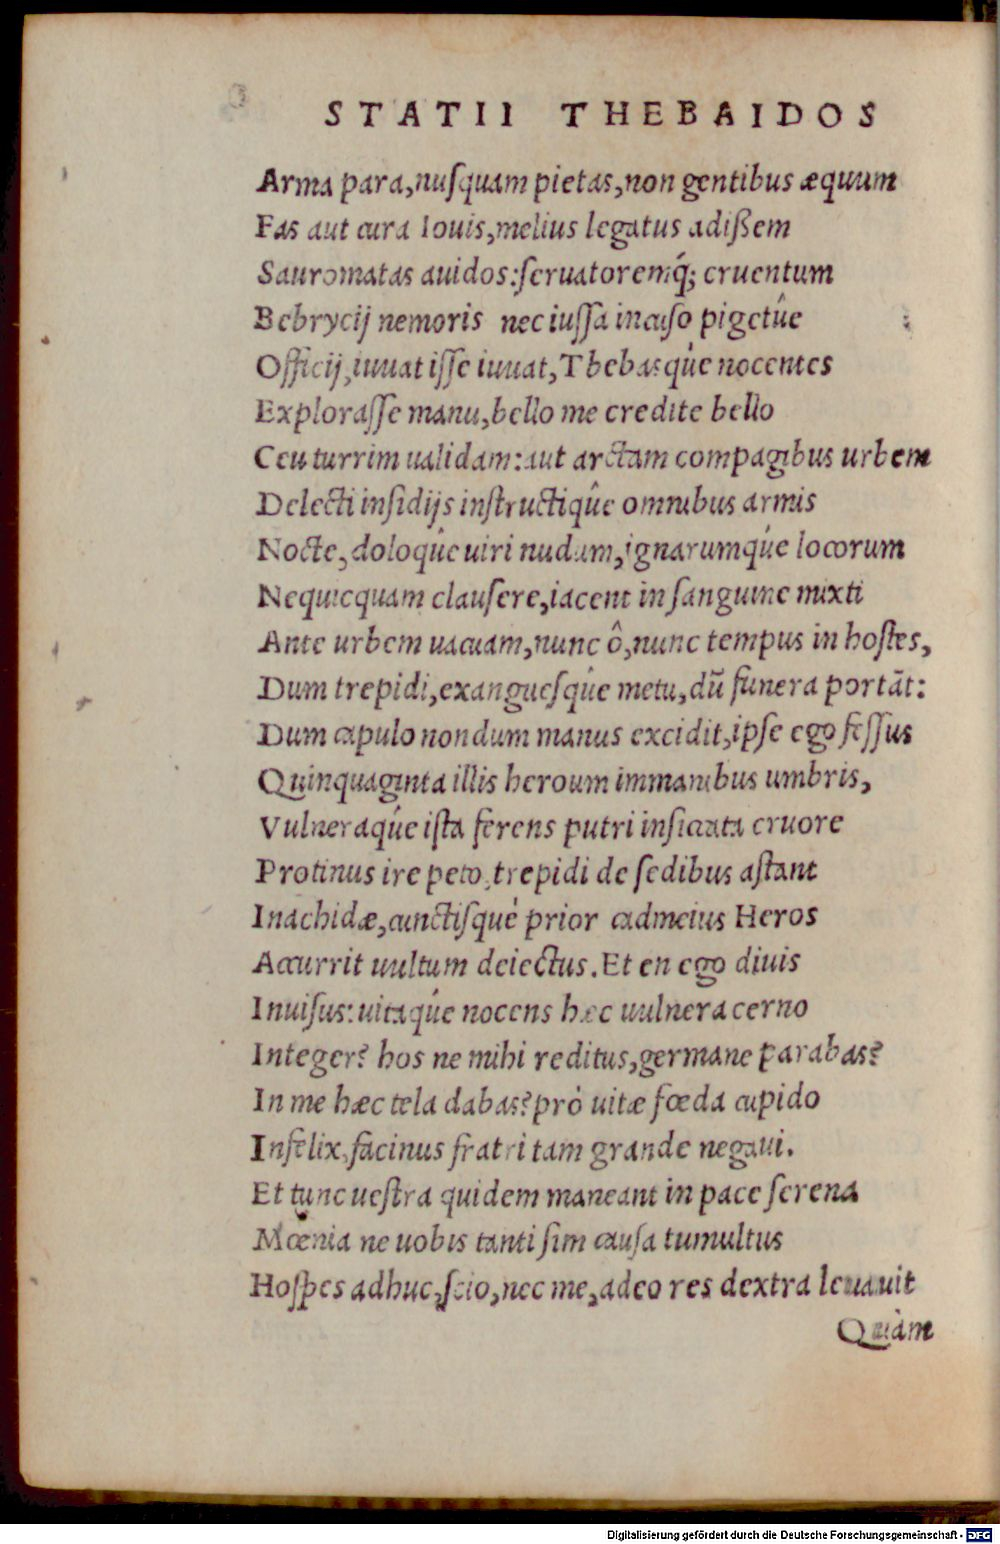 STATII THEBAIDOS
Arma para,nuſquam pietas,non gentibus æquum
Fas aut cura Iouis,melius legatus adißem
Sauromatas auidos:ſeruatoremq́; cruentum
Bebrycij nemoris nec iuſſa incuſo pigetûe
Officij,iuuat iſſe iuuat,Thebasq́ue nocentes
Exploraſſe manu,bello me credite bello
Ceu turrim ualidam:aut arctam compagibus urbem
Delecti inſidijs inſtructiqûe omnibus armis
Nocte,doloq́ue uiri nudum,ignarumq́ue locorum
Nequicquam clauſere,iacent in ſanguine mixti
Ante urbem uacuam,nunc ô,nunc tempus in hoſtes,
Dum trepidi,exangueſq́ue metu,dũ funera portãt:
Dum capulo nondum manus excidit,ipſe ego feſſus
Quinquaginta illis heroum immanibus umbris,
Vulneraq́ue iſta ferens putri inſiccata cruore
Protinus ire peto,trepidi de ſedibus aſtant
Inachidæ,cunctiſqué prior cadmeius Heros
Accurrit uultum deiectus.Et en ego diuis
Inuiſus:uitaq́ue nocens hæc uulnera cerno
Integer? hos ne mihi reditus,germane parabas?
In me hæc tela dabas?prò uitæ fœda cupido
Infelix,facinus fratri tam grande negaui.
Et tunc ueſtra quidem maneant in pace ſerena
Mœnia ne uobis tanti ſim cauſa tumultus
Hoſpes adhuc,ſcio,nec me,adeo res dextra leuauit
Quàm
Digitalisierung gefördert durch die Deutsche Forschungsgemeinschaft - DFG